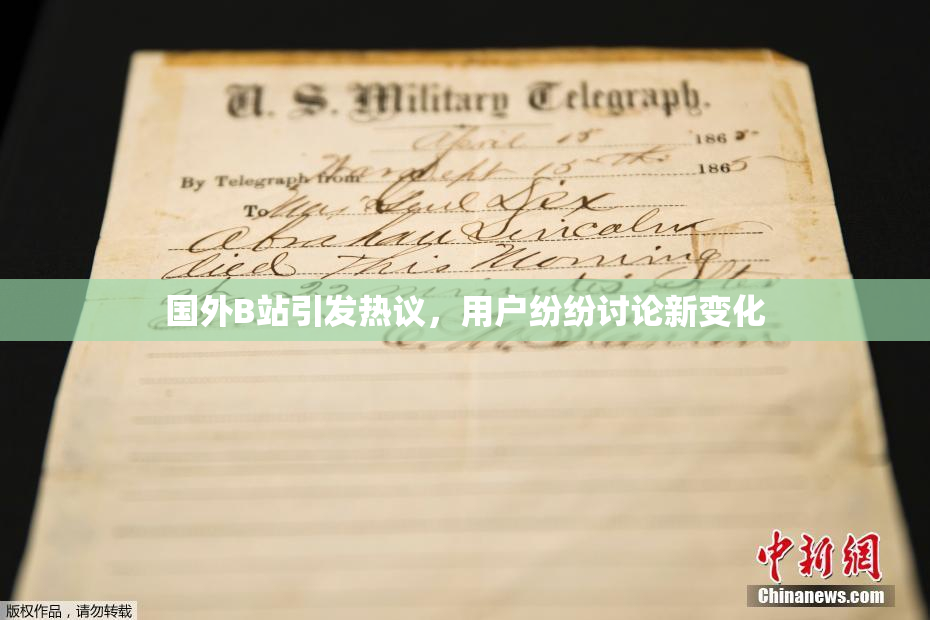 U. S. Military Telegraph.
April 15 1865
By Telegraph from War Dept 15th 1865
To Maj Genl Dix
Abraham Lincoln
died This Morning
at 22 minutes after
国外B站引发热议，用户纷纷讨论新变化
E. M. Stanton
中新网
Chinanews.com
版权作品，请勿转载